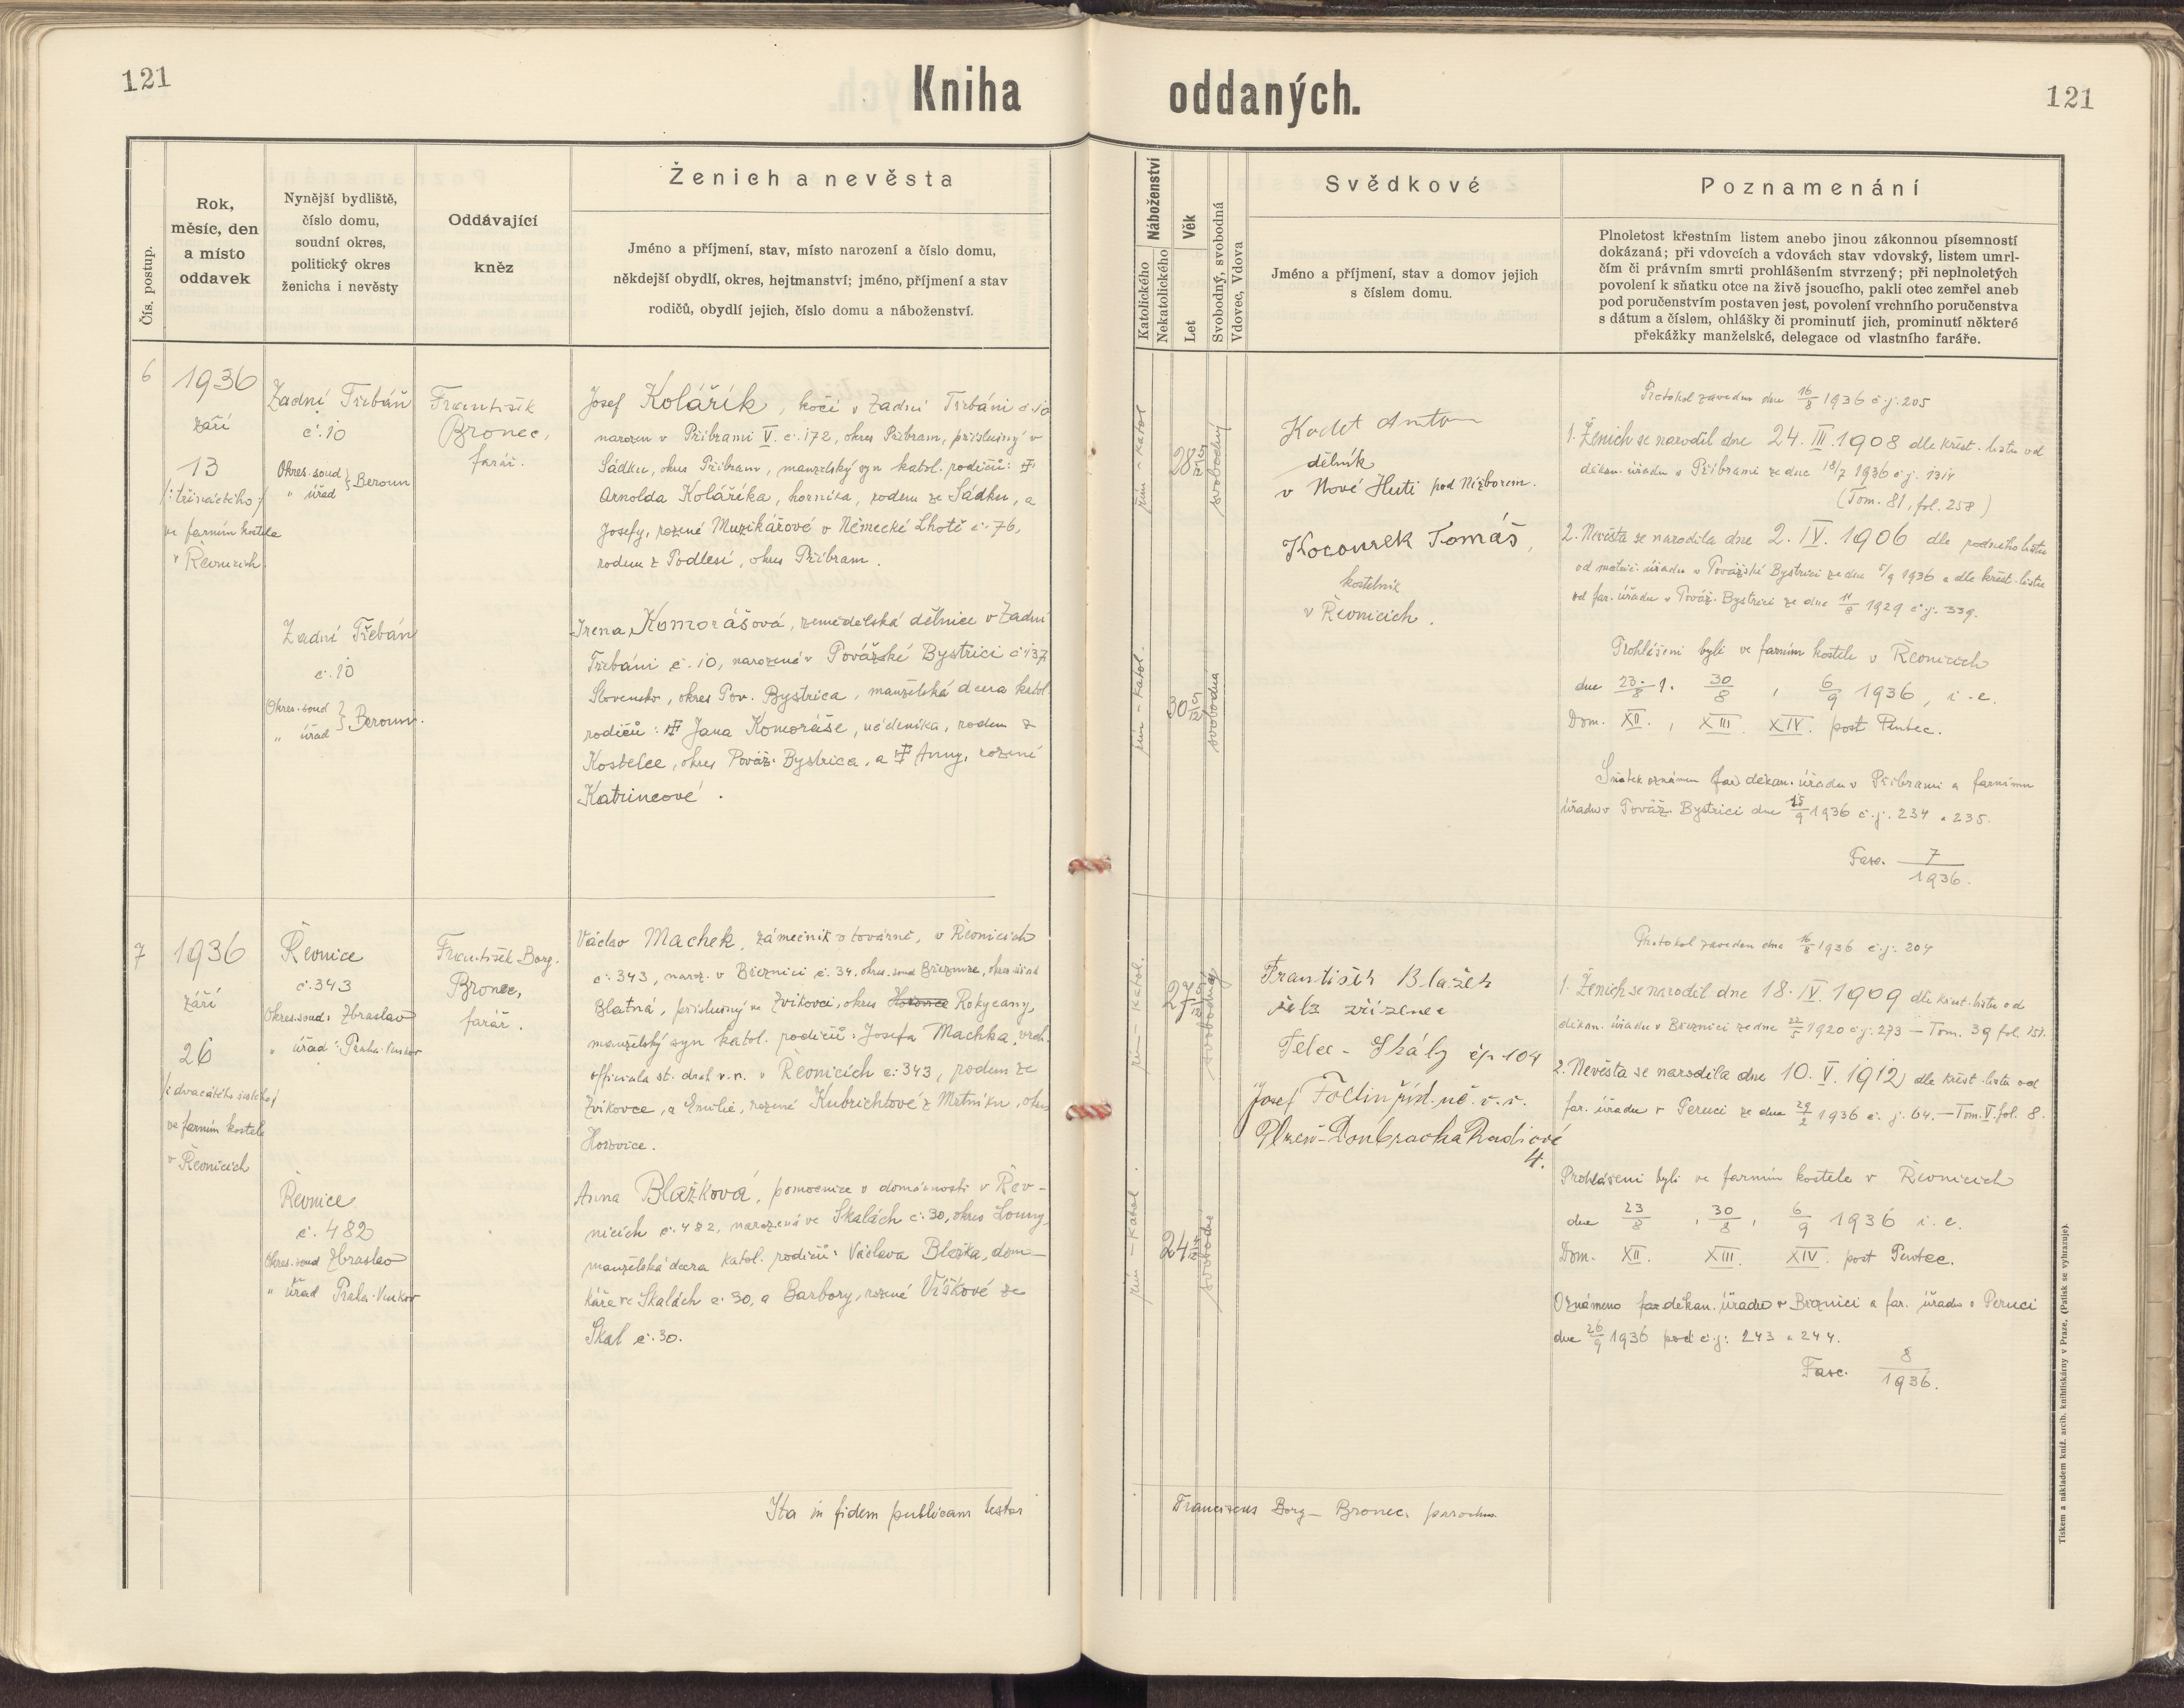 121
Kniha oddaných.
121
Čís. postup.
Rok,
měsíc, den
a místo
oddavek
Nynější bydliště,
číslo domu,
soudní okres,
politický okres
ženicha i nevěsty
Oddávající
kněz
Ženich a nevěsta
Jméno a příjmení, stav, místo narození a číslo domu,
někdejší obydlí, okres, hejtmanství; jméno, příjmení a stav
rodičů, obydlí jejich, číslo domu a náboženství.
Náboženství
Katolického
Nekatolického
Věk
Let
Svobodný, svobodná
Vdovec, Vdova
Svědkové
Jméno a příjmení, stav a domov jejich
s číslem domu.
Poznamenání
Plnoletost křestním listem anebo jinou zákonnou písemností
dokázaná; při vdovcích a vdovách stav vdovský, listem umrl-
čím či právním smrti prohlášením stvrzený; při neplnoletých
povolení k sňatku otce na živě jsoucího, pakli otec zemřel aneb
pod poručenstvím postaven jest, povolení vrchního poručenstva
s dátum a číslem, ohlášky či prominutí jich, prominutí některé
překážky manželské, delegace od vlastního faráře.
6
1936
září
13
/: třináctého :/
ve farním kostele
v Řevnicích.
Zadní Třebáň
č. 10
Okres. soud
„ úřad } Beroun
František
Bronec,
farář.
Josef Kolářík, kočí v Zadní Třebáni č. 10
narozen v Příbrami V. č. 172, okres Příbram, příslušný v
Sádku, okres Příbram, manželský syn katol. rodičů: †
Arnolda Koláříka, horníka, rodem ze Sádku, a
Josefy, rozené Muzikářové v Německé Lhotě č. 76,
rodem z Podlesí, okres Příbram.
Zadní Třebáň
č. 10
Okres. soud
„ úřad } Beroun.
Irena Komorášová, zemědělská dělnice v Zadní
Třebáni č. 10, narozená v Považské Bystrici č. 137
Slovensko, okres Pov. Bystrica, manželská dcera katol.
rodičů: † Jana Komoráše, nádeníka, rodem z
Kostelce, okres Považ. Bystrica, a † Anny, rozené
Katrincové.
řím - katol
28 5/12
svobodný
řím - katol.
30 5/12
svobodná
Kodet Anton
dělník
v Nové Huti pod Nižborem.
Kocourek Tomáš,
kostelník
v Řevnicích.
Protokol zaveden dne 16/8 1936 č.j. 205
1. Ženich se narodil dne 24. III. 1908 dle křest. listu od
děkan. úřadu v Příbrami ze dne 18/7 1936 č.j. 1314
(Tom. 81, fol. 258)
2. Nevěsta se narodila dne 2. IV. 1906 dle rodného listu
od matrič. úřadu v Považské Bystrici ze dne 5/9 1936 a dle křest. listu
od far. úřadu v Považ. Bystrici ze dne 11/8 1929 č.j. 339.
Prohlášeni byli ve farním kostele v Řevnicích
dne 23/8, 30/8, 6/9 1936, i. e.
Dom. XII., XIII. XIV. post Pentec.
Sňatek oznámen far děkan. úřadu v Příbrami a farnímu
úřadu v Považ. Bystrici dne 15/9 1936 č.j. 234 a 235.
Fasc. 7/1936.
7
1936
září
26
/: dvacátého šestého :/
ve farním kostele
v Řevnicích
Řevnice
č. 343
Okres. soud: Zbraslav
„ úřad: Praha-Venkov
František Borg.
Bronec,
farář.
Václav Machek, zámečník v továrně, v Řevnicích
č. 343, naroz. v Březnici č. 34, okres. soud Březnice, okres. úřad
Blatná, příslušný ve Zvíkovci, okres Hořovice Rokycany,
manželský syn katol. rodičů: Josefa Machka, vrch.
officiala st. drah v. v. v Řevnicích č. 343, rodem ze
Zvíkovce, a Emilie, rozené Kubrichtové z Mrtníku, okres
Hořovice.
Řevnice
č. 482
Okres. soud Zbraslav
„ úřad Praha-Venkov
Anna Blažková, pomocnice v domácnosti v Řev-
nicích č. 482, narozená ve Skalách č. 30, okres Louny,
manželská dcera katol. rodičů: Václava Blažka, dom-
káře ve Skalách č. 30, a Barbory, rozené Víškové ze
Skal č. 30.
řím - katol.
27 5/12
svobodný
řím - katol.
24 4/12
svobodná
František Blažek
žel. zřízenec
Telec - Skály čp 104
Josef Fodlin
Plzeň - Doubravka Radiové
4.
Protokol zaveden dne 16/8 1936 č.j. 204
1. Ženich se narodil dne 18. IV. 1909 dle křest. listu od
děkan. úřadu v Březnici ze dne 22/5 1920 č.j. 273 — Tom. 39 fol. 151.
2. Nevěsta se narodila dne 10. V. 1912 dle křest. listu od
far. úřadu v Peruci ze dne 29/2 1936 č. j. 64. — Tom. V. fol. 8.
Prohlášeni byli ve farním kostele v Řevnicích
dne 23/8, 30/8, 6/9 1936 i. e.
Dom. XII. XIII. XIV. post Pentec.
Oznámeno far děkan. úřadu v Březnici a far. úřadu v Peruci
dne 26/9 1936 pod č.j: 243 a 244.
Fasc. 8/1936.
Ita in fidem publicam testor Franciscus Borg - Bronec, parochus
Tiskem a nákladem kníž. arcib. knihtiskárny v Praze. (Patisk se vyhrazuje).